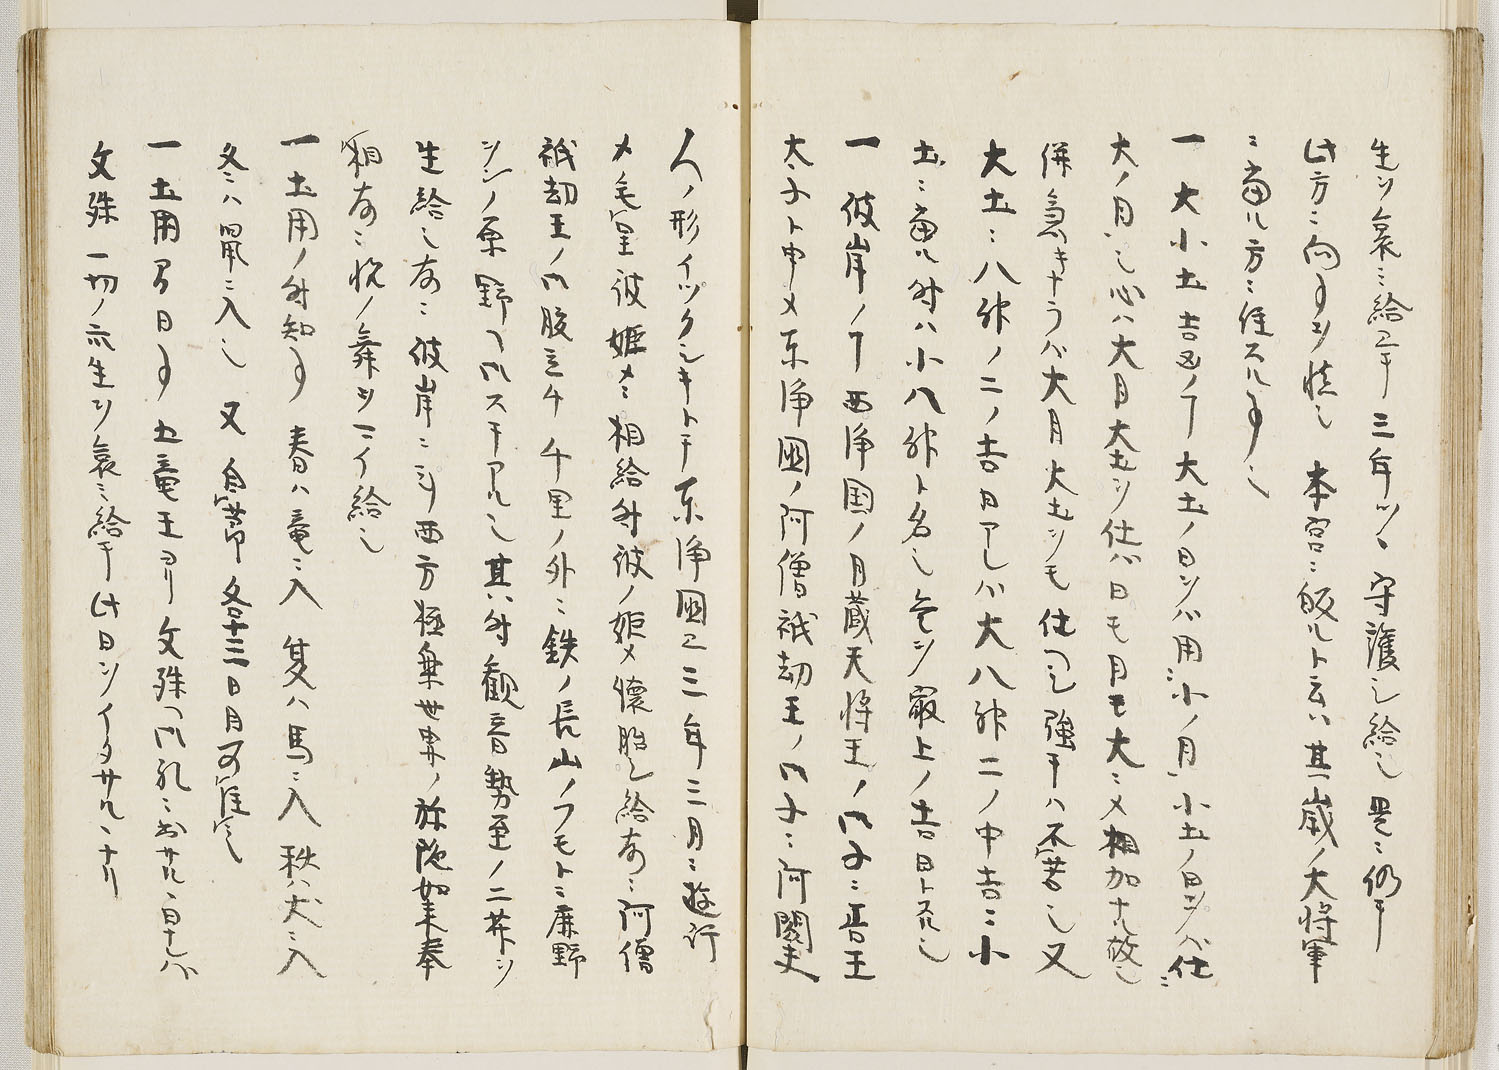 生ヲ哀ミ給テ三年ツヽ守護シ給也是ニ仍テ
此方ニ向事ヲ慎也本宮ニ皈ルト云ハ其歳ノ大将軍
ニ當ル方ニ住スル事也
一大小土吉凶ノ事大土ノ日ヲハ用ニ小ノ月ニ小土ノ日ヲハ仕ニ
大ノ月ニ也心ハ大月大土ヲ仕ハ日モ月モ大ニメ相加ナル故也
併急キナラハ大月大土ヲモ仕ヘシ強テハ不苦也又
大土ニ八神ノ二ノ吉日アレハ大八神二ノ中吉ニ小
土ニ當ル時ハ小八神ト名也是ヲ最上ノ吉日トスル也
一彼岸ノ事西浄国ノ月蔵天将王ノ御子ニ吾王
太子ト申メ東浄國ノ阿僧祇劫王ノ御子ニ阿閦夫
人ノ形イツクシキトテ東浄國ニ三年三月ニ遊行
メ毛皇彼姫メニ相給時彼ノ姫メ懐胎シ給ふニ阿僧
祇劫王ノ御腹立チ千里ノ外ニ鉄ノ長山ノフモトニ麻野
ソンノ栗野ヘ御ステアル也其ハ時観音勢至ノ二菩薩ヲ
生給シふニ彼岸ニシテ西方極樂世界ノ弥陀如来奉
相ふニ悦ノ舞ヲマイ給也
一土用ノ時知事春ハ竜ニ入夏ハ馬ニ入秋ハ犬ニ入
冬ハ鼠ニ入也又自節各十三日目可准之也
一土用間日事土竜王ヨリ文殊ヘ御礼ニ出サル日ナレハ
文殊一切ノ衆生ヲ哀ミ給テ此日ヲイタサルヽナリ